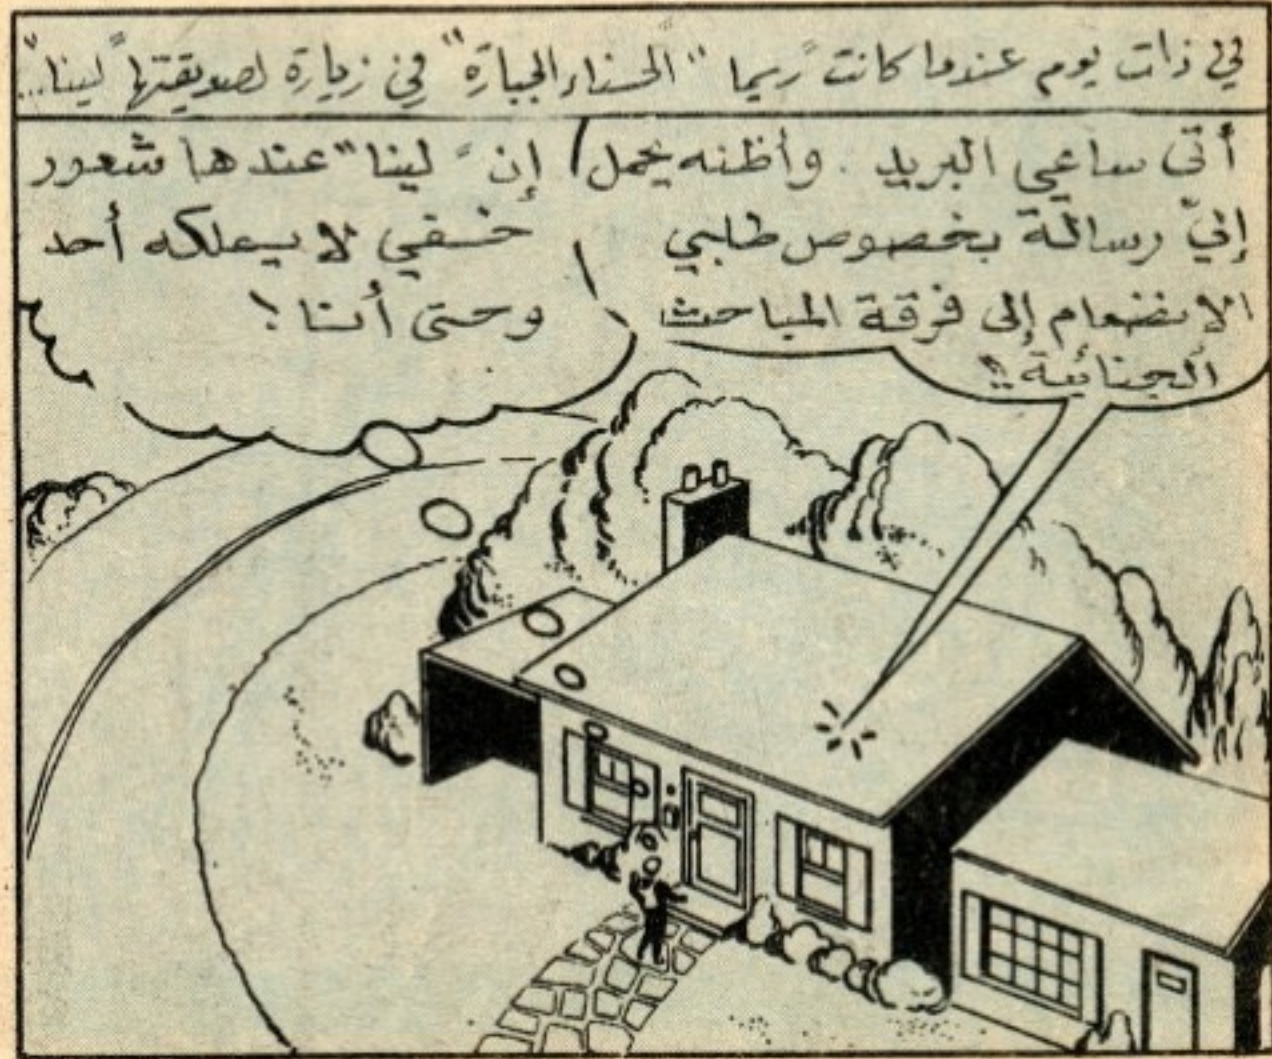 في ذات يوم عندما كانت "ريما" "الحسناء الجبارة" في زيارة لصديقتها "لينا"...
أتى ساعي البريد . وأظنه يحمل
إليّ رسالة بخصوص طلبي
الانضمام إلى فرقة المباحث
الجنائية !!
إن "لينا" عندها شعور
خفي لا يملكه أحد
وحتى أنا !